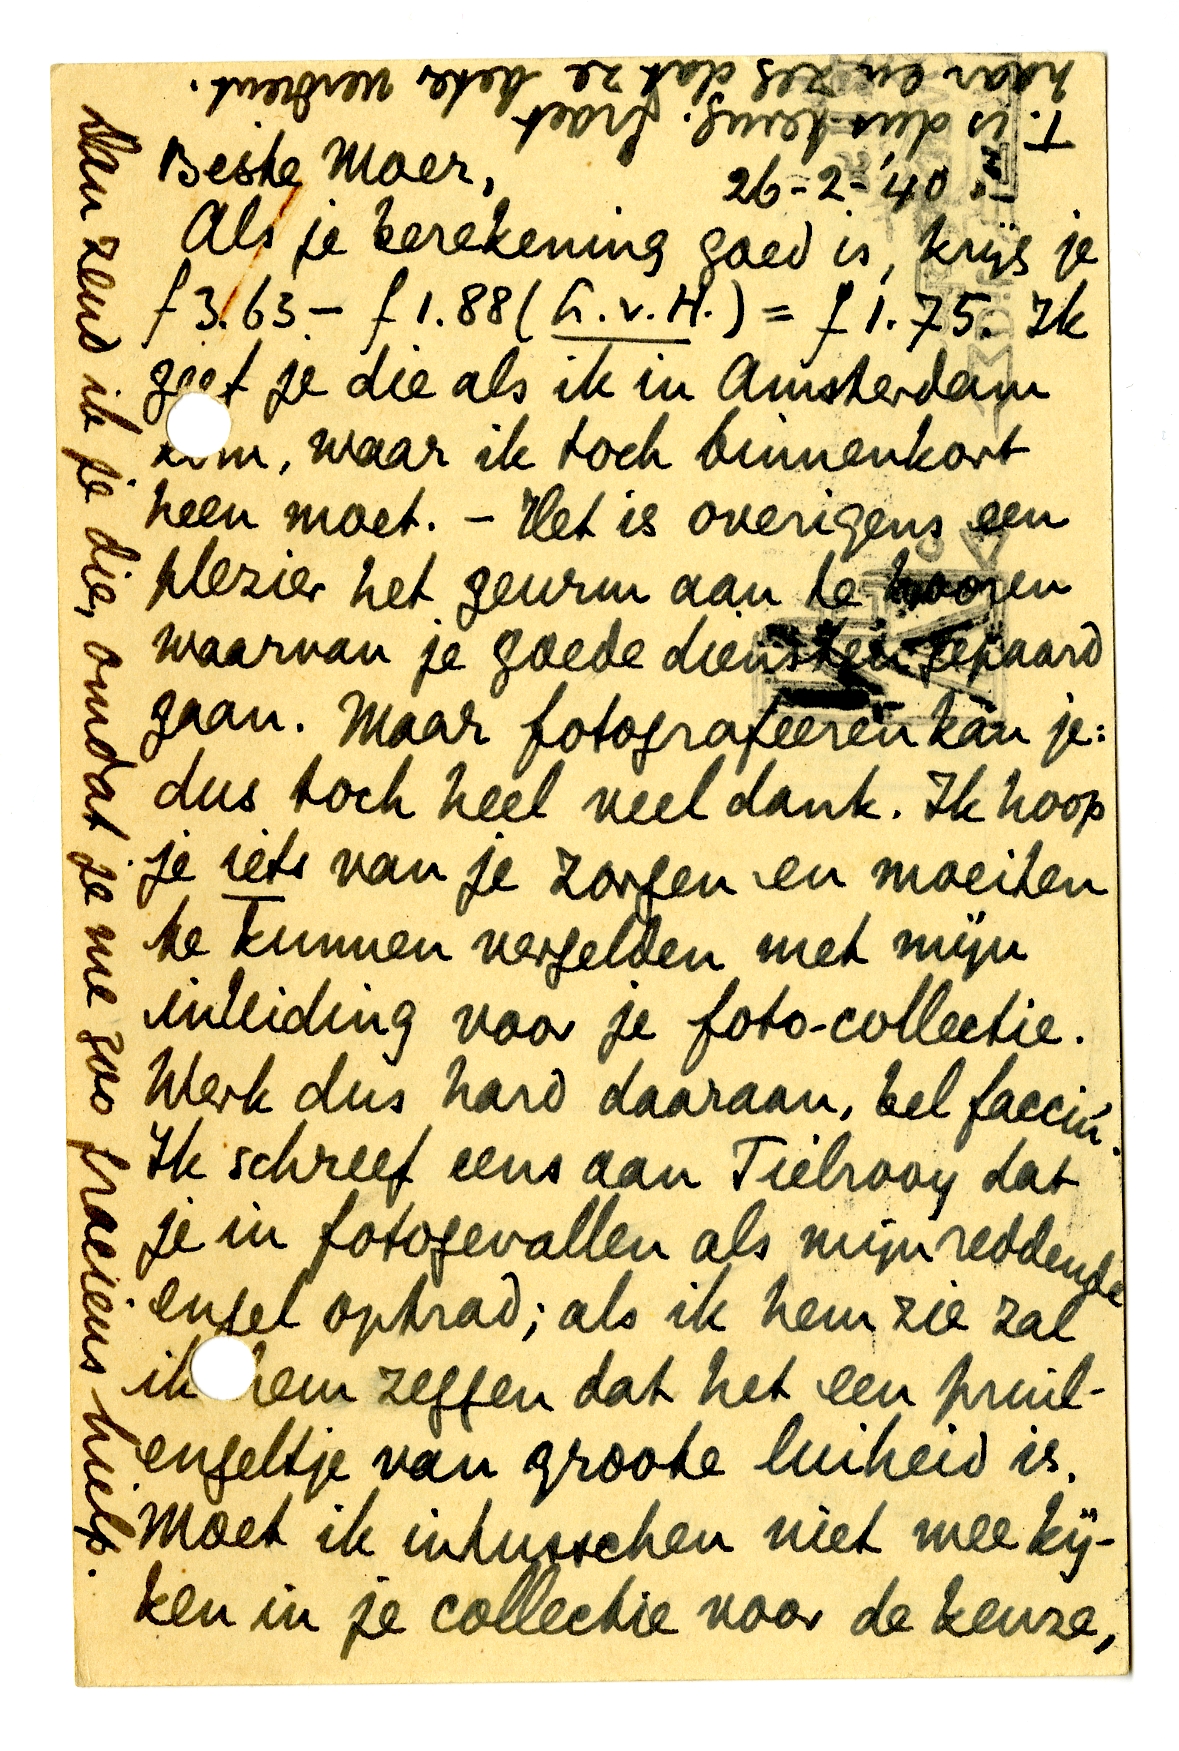 Beste Moer,
26-2-'40.
Als je berekening goed is, krijg je
f 3.63 – f 1.88 (h.v.H.) = f 1.75. Ik
geef je die als ik in Amsterdam
kom, waar ik toch binnenkort
heen moet. – Het is overigens een
plezier het geurm aan te hooren
waarvan je goede diensten gepaard
gaan. Maar fotografeeren kan je:
dus toch heel veel dank. Ik hoop
je iets van je zorgen en moeiten
te kunnen vergelden met mijn
inleiding voor je foto-collectie.
Werk dus hard daaraan, bel facciu.
Ik schreef eens aan Tielrooy dat
je in fotogevallen als mijn reddende
engel optrad; als ik hem zie zal
ik hem zeggen dat het een pruil-
engeltje van groote luiheid is.
Moet ik intusschen niet mee kij-
ken in je collectie voor de keuze,
Dan zend ik je die, omdat je me zoo gracieus hielp.
T. is dus terug. Groet
haar en zeg dat ze beter verdient.